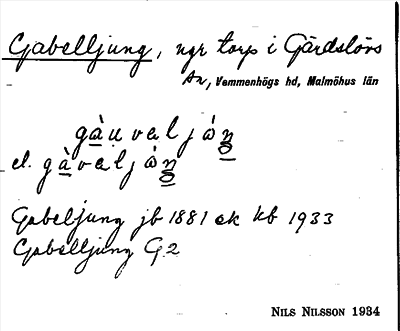 Gabelljung, ngr torp i Gärdslövs
sn, Vemmenhögs hd, Malmöhus län
gàu̯vəljòŋ
el. gàvəljòŋ
Gabeljung jb 1881 ek kb 1933
Gabelljung G2
NILS NILSSON 1934